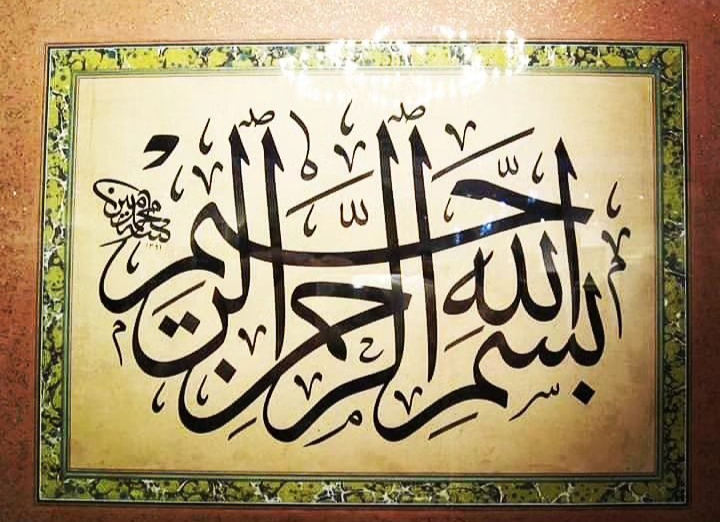 بِسْمِ اللهِ الرَّحْمٰنِ الرَّحِيْمِ
١٢٩١